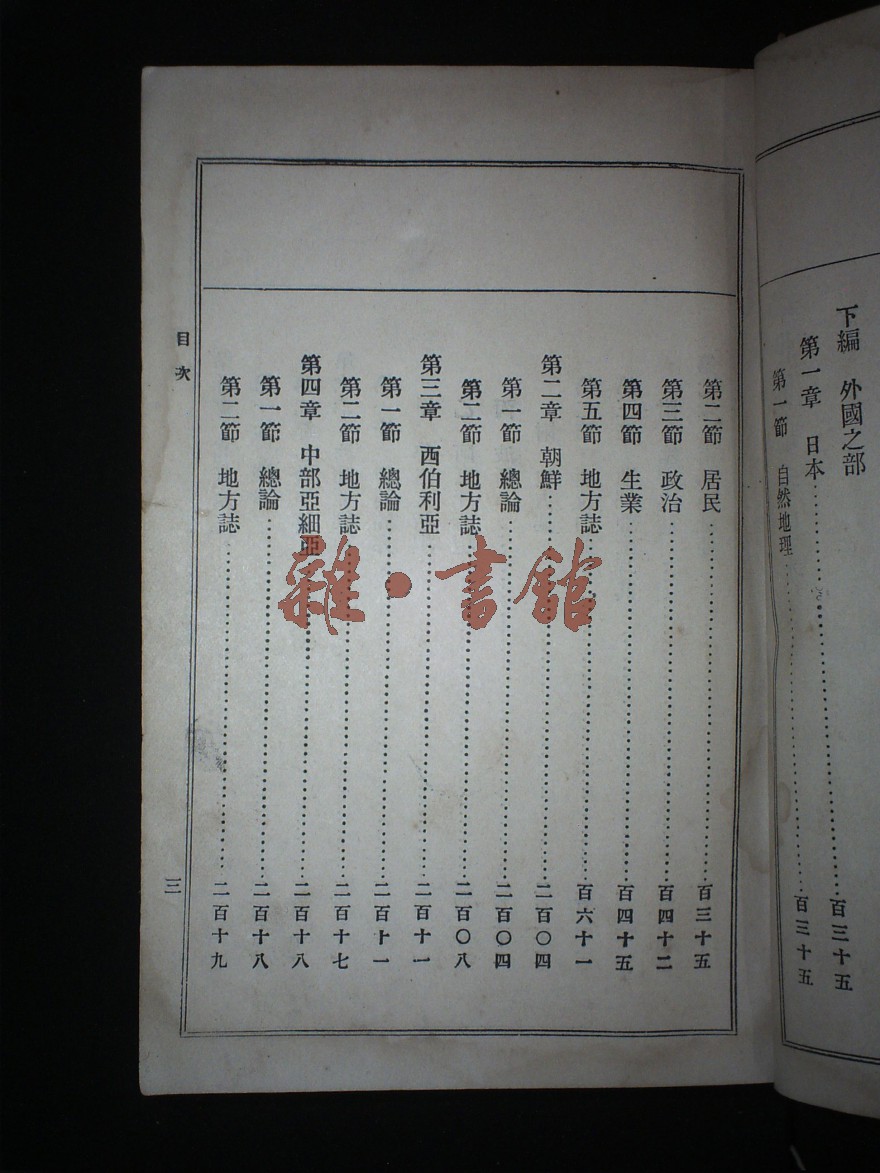 下編　外國之部
第一章　日本……百三十五
第一節　自然地理……百三十五
第二節　居民……百三十五
第三節　政治……百四十二
第四節　生業……百四十五
第五節　地方誌……百六十一
第二章　朝鮮……二百〇四
第一節　總論……二百〇四
第二節　地方誌……二百〇八
第三章　西伯利亞……二百十一
第一節　總論……二百十一
第二節　地方誌……二百十七
第四章　中部亞細亞……二百十八
第一節　總論……二百十八
第二節　地方誌……二百十九
目次
三
雜·書館